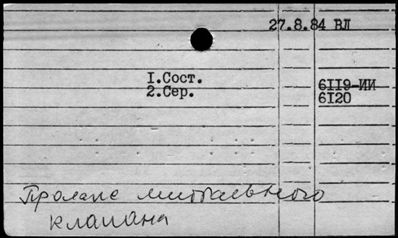 27.8.84 ВЛ
I.Сост.
2.Сер.
6119-ИИ
6120
Пролапс митрального
клапана